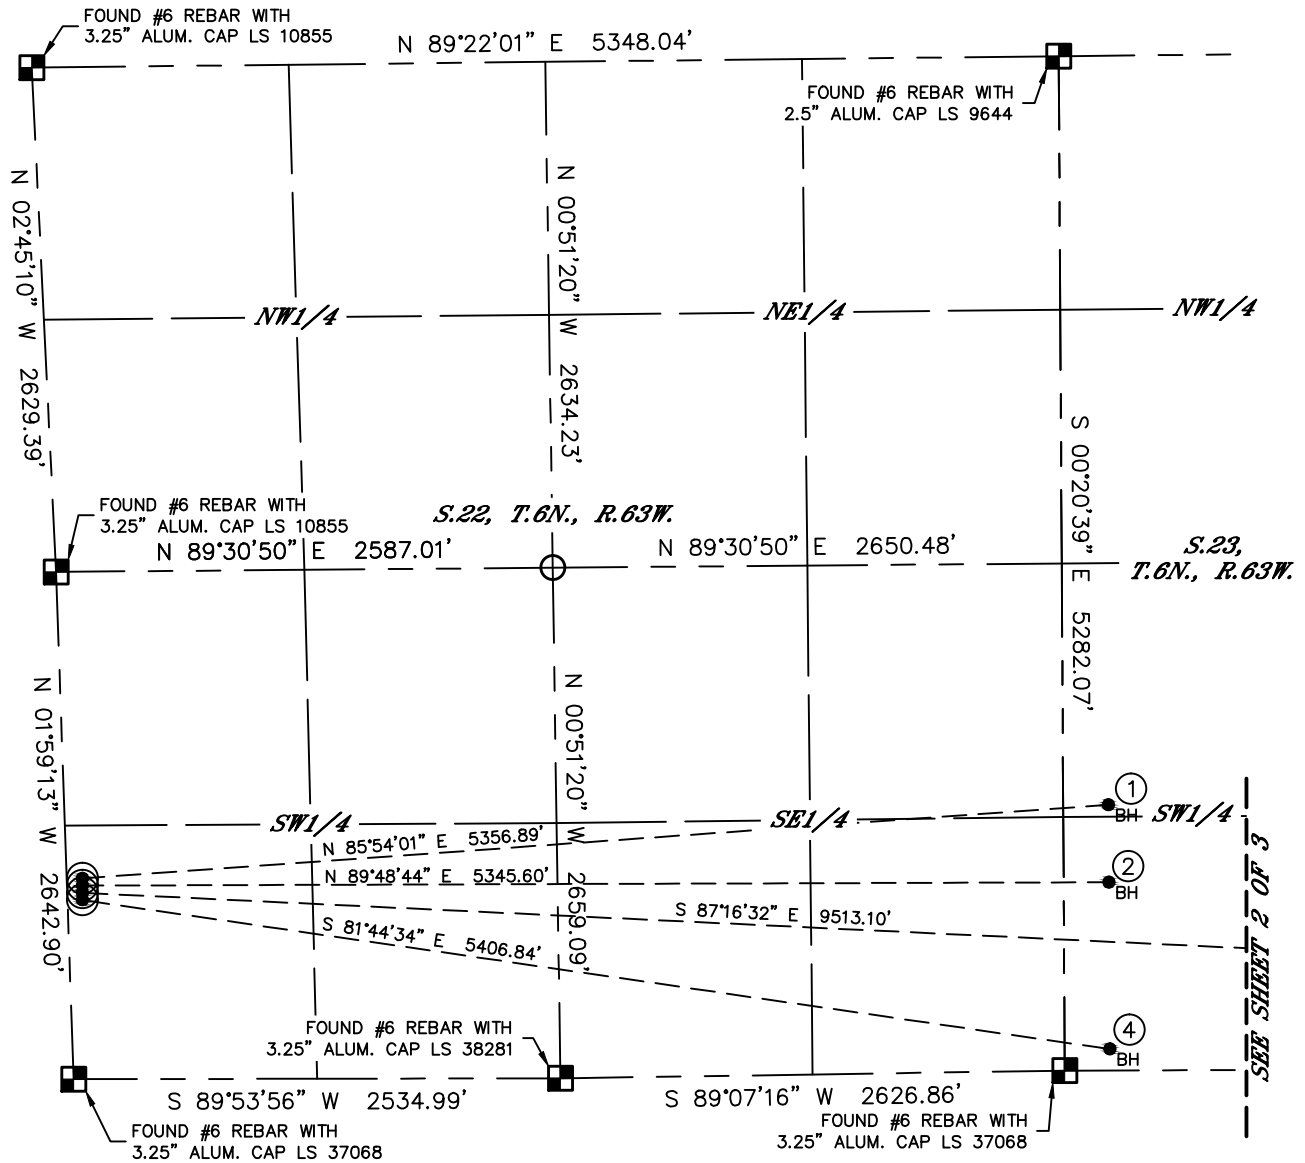 FOUND #6 REBAR WITH
3.25” ALUM. CAP LS 10855
N 89°22’01” E 5348.04’
FOUND #6 REBAR WITH
2.5” ALUM. CAP LS 9644
N 02°45’10” W 2629.39’
N 00°51’20” W 2634.23’
NW1/4
NE1/4
NW1/4
S 00°20’39” E 5282.07’
FOUND #6 REBAR WITH
3.25” ALUM. CAP LS 10855
S.22, T.6N., R.63W.
N 89°30’50” E 2587.01’
N 89°30’50” E 2650.48’
S.23,
T.6N., R.63W.
N 01°59’13” W 2642.90’
N 00°51’20” W 2659.09’
1
BH
SW1/4
SE1/4
SW1/4
N 85°54’01” E 5356.89’
N 89°48’44” E 5345.60’
2
BH
S 87°16’32” E 9513.10’
S 81°44’34” E 5406.84’
SEE SHEET 2 OF 3
4
BH
FOUND #6 REBAR WITH
3.25” ALUM. CAP LS 38281
S 89°53’56” W 2534.99’
S 89°07’16” W 2626.86’
FOUND #6 REBAR WITH
3.25” ALUM. CAP LS 37068
FOUND #6 REBAR WITH
3.25” ALUM. CAP LS 37068